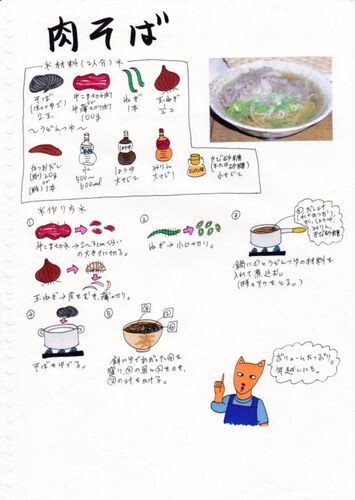 肉そば
＊材料(2人分)＊
そば
(ゆで)
2玉
牛こま切れ肉
or
牛薄切り肉
100g
ねぎ
1本
玉ねぎ
1/2コ
〜うどんつゆ〜
かつおだし
(粉)20g
or
(粉)1本
水
500〜
600ml
しょうゆ
大さじ2
みりん
大さじ1
きび砂糖
(または砂糖)
小さじ2
＊作り方＊
①
牛こま切れ→2〜3cmくらい
の大きさに切る。
玉ねぎ→皮をむき、薄切り。
②
ねぎ→小口切り。
③
鍋に①とうどんつゆの材料を
入れて煮込む。
(時々アクをとる。)
④
そばをゆでる。
⑤
鉢にゆであがった④を
盛り、③の具と②をのせ、
③の汁をかける。
ボリュームたっぷり。
年越しにも。